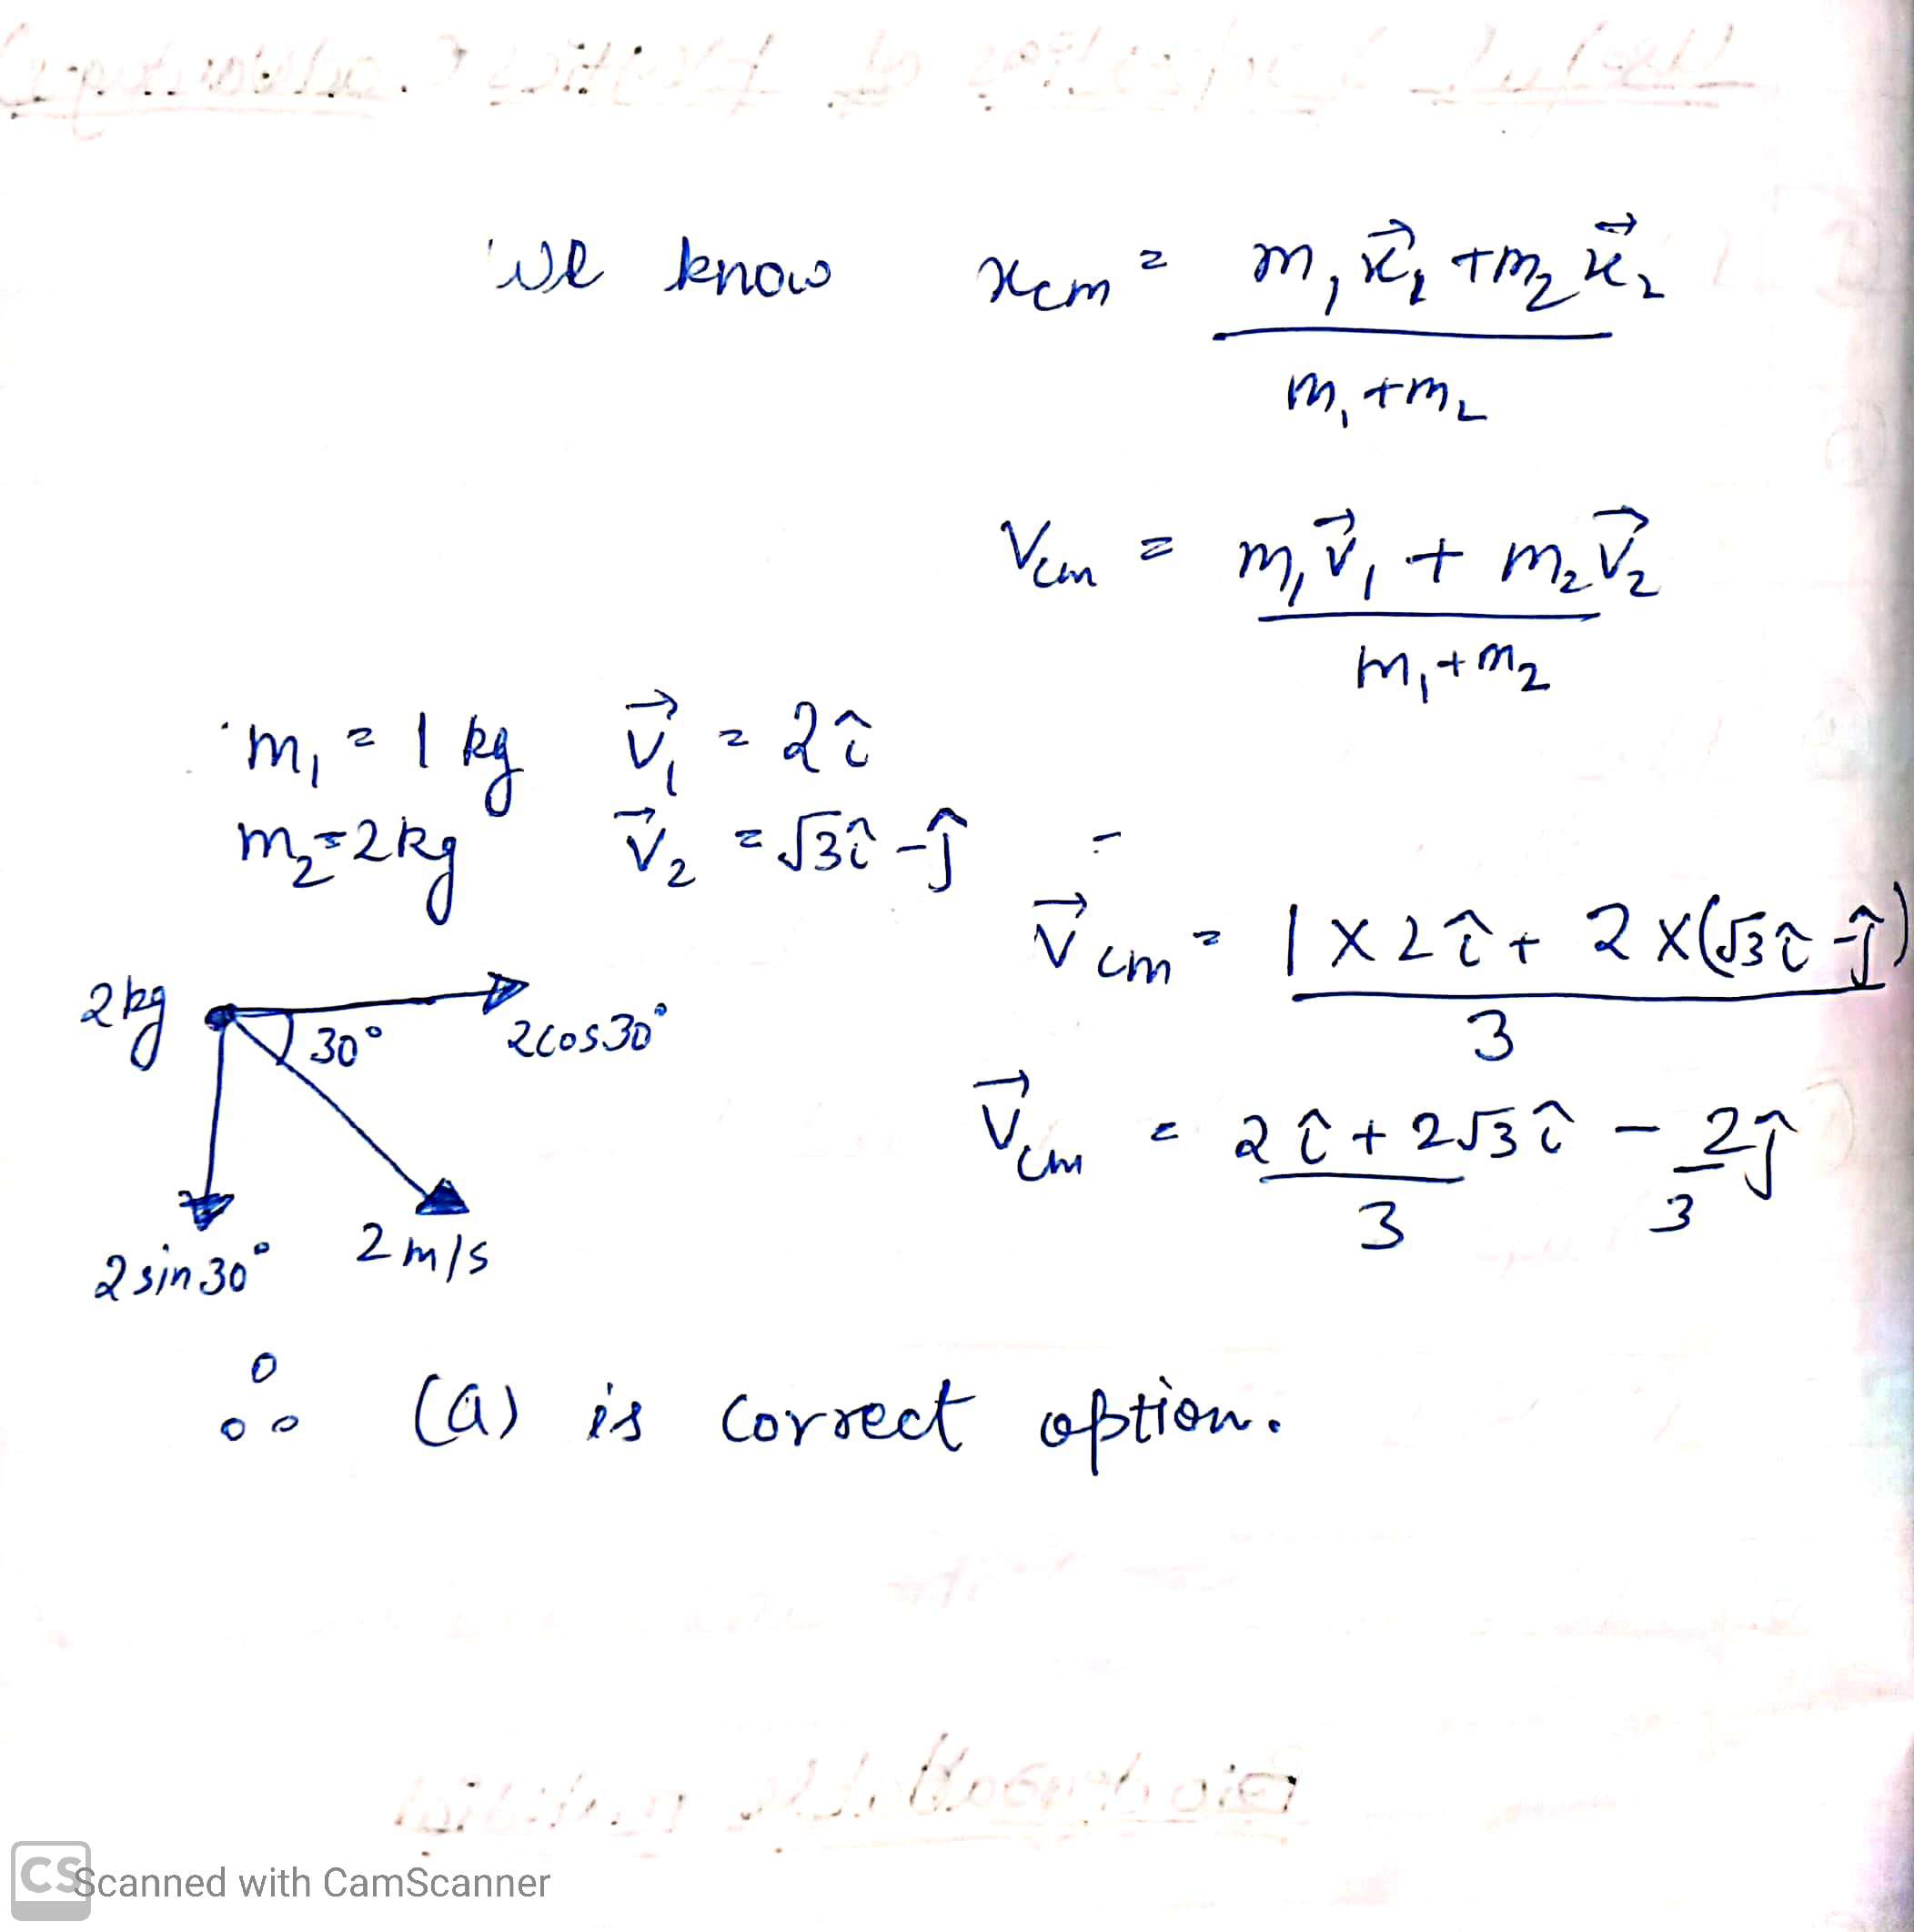 we know x_cm = m₁x⃗₁ + m₂x⃗₂ / m₁+m₂
V_cm = m₁v⃗₁ + m₂v⃗₂ / m₁+m₂
m₁ = 1 kg v⃗₁ = 2î
m₂ = 2kg v⃗₂ = √3î - ĵ
v⃗_cm = 1 × 2î + 2 × (√3î - ĵ) / 3
2kg 30° 2cos30°
v⃗_cm = 2î + 2√3î / 3 - 2ĵ / 3
2sin30° 2 m/s
∴ (a) is correct option.
CS Scanned with CamScanner